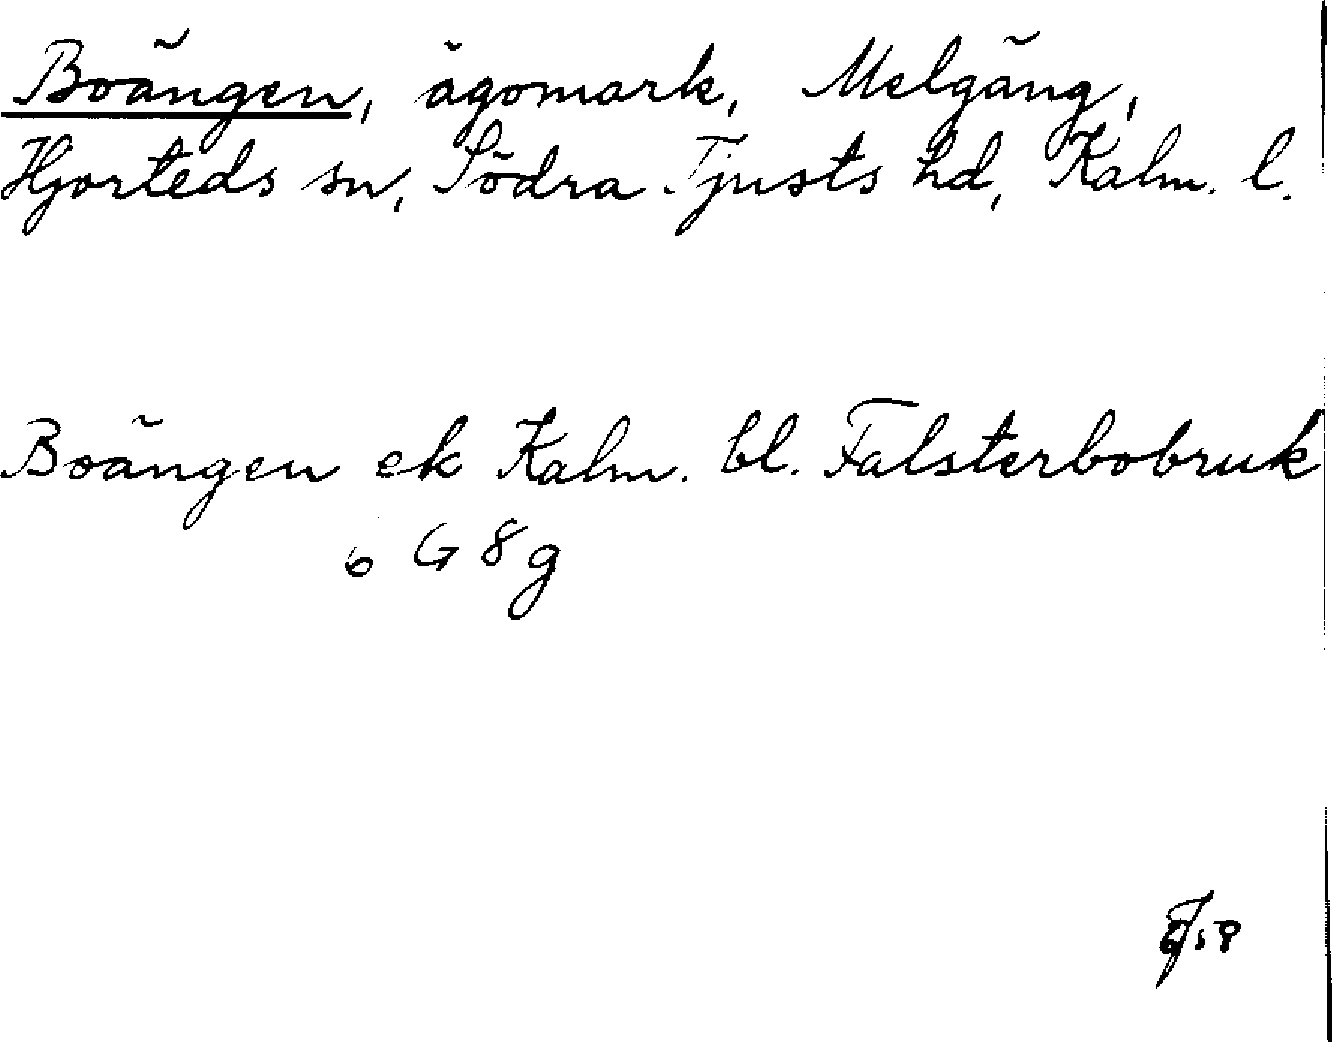 Boängen, ägomark, Melgäng,
Hjorteds sn, Södra Tjusts hd, Kalm. l.
Boängen ek Kalm. bl. Falsterbobruk
6 G 8 g